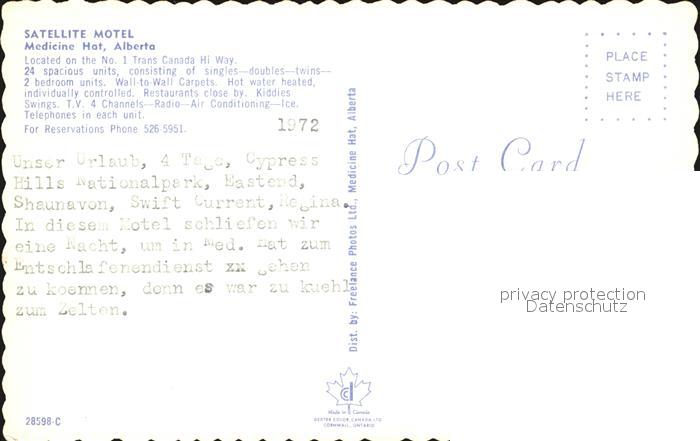 SATELLITE MOTEL
Medicine Hat, Alberta
Located on the No. 1 Trans Canada Hi Way.
24 spacious units, consisting of singles—doubles—twins—
2 bedroom units. Wall-to-Wall Carpets. Hot water heated,
individually controlled. Restaurants close by. Kiddies
Swings. T.V. 4 Channels—Radio—Air Conditioning—Ice.
Telephones in each unit.
For Reservations Phone 526-5951.
1972
Unser Urlaub, 4 Tage, Cypress
Hills Nationalpark, Eastend,
Shaunavon, Swift Current, Regina.
In diesem Motel schliefen wir
eine Nacht, um in Med. Hat zum
Entschlafenendienst xx gehen
zu koennen, denn es war zu kuehl
zum Zelten.
28598-C
Dist. by: Freelance Photos Ltd., Medicine Hat, Alberta
Made in Canada
DEXTER COLOR CANADA LTD
CORNWALL, ONTARIO
PLACE
STAMP
HERE
Post Card
privacy protection
Datenschutz